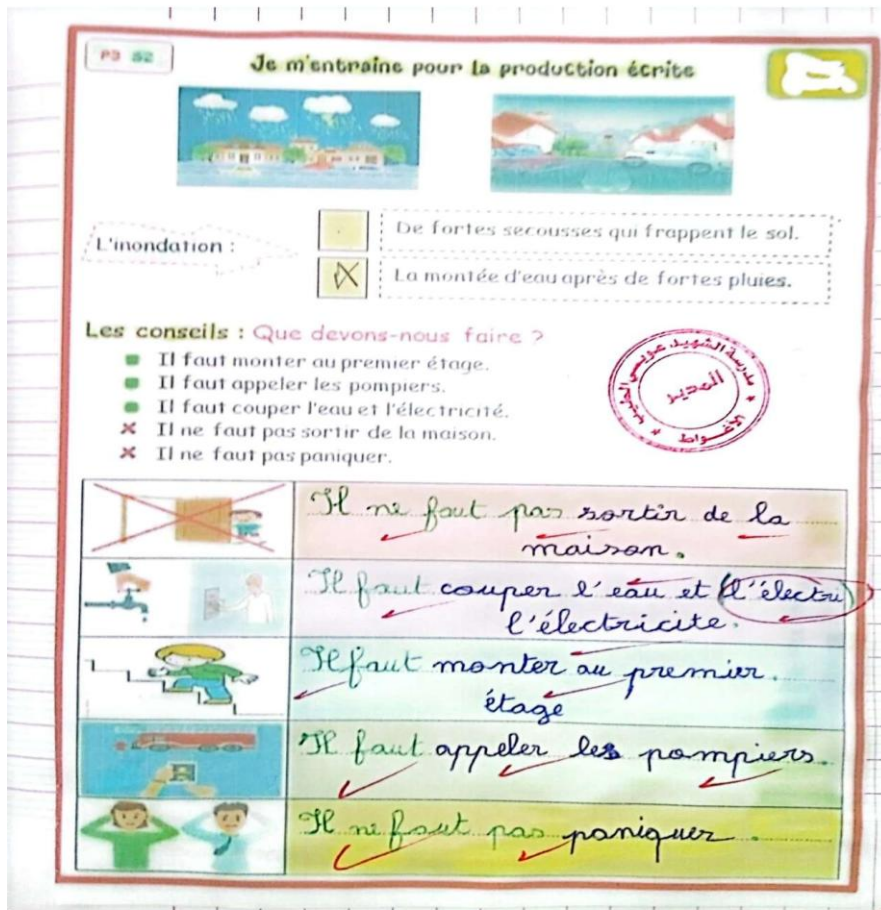 P3 S2
Je m'entraine pour la production écrite
L'inondation :
De fortes secousses qui frappent le sol.
La montée d'eau après de fortes pluies.
Les conseils : Que devons-nous faire ?
Il faut monter au premier étage.
Il faut appeler les pompiers.
Il faut couper l'eau et l'électricité.
Il ne faut pas sortir de la maison.
Il ne faut pas paniquer.
مدرسة الشهيد عويسي الطيب
المدير
الأغواط
Il ne faut pas sortir de la
maison.
Il faut couper l'eau et (l'électri)
l'électricite.
Il faut monter au premier.
étage
Il faut appeler les pompiers.
Il ne faut pas paniquer.